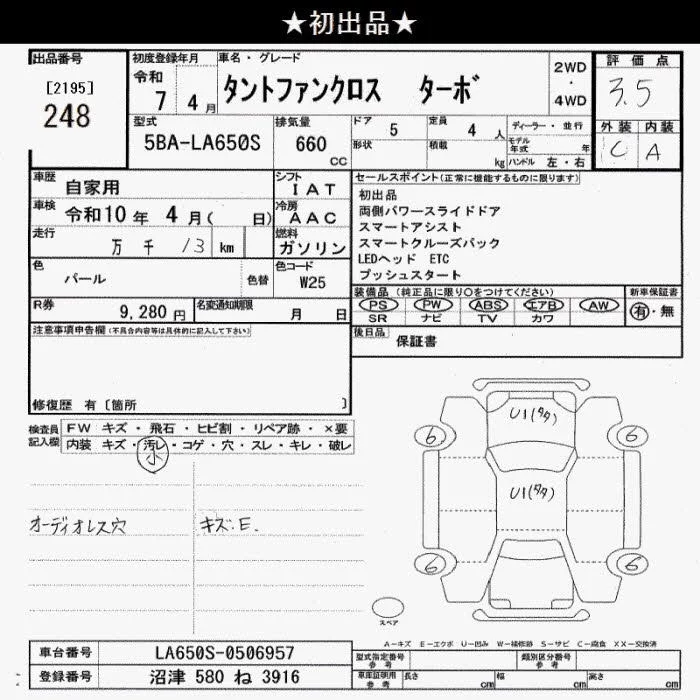 ★初出品★
出品番号
[2195]
248
初度登録年月
令和
7 4 月
車名・グレード
タントファンクロス ターボ
2WD
・
4WD
評価点
3.5
外装 内装
C A
型式
5BA-LA650S
排気量
660
CC
ドア 5
定員 4 人
形状
積載 kg
ディーラー・並行
モデル年式 年
ハンドル 左・右
車歴 自家用
シフト IAT
車検 令和10年 4 月( 日)
冷房 AAC
走行 万 千 13 km
燃料 ガソリン
色 パール 色替
色コード W25
R券 9,280 円
名変通知期限 月 日
セールスポイント(正常に機能するものに限ります)
初出品
両側パワースライドドア
スマートアシスト
スマートクルーズパック
LEDヘッド ETC
プッシュスタート
装備品(純正品に限り○をつけてください)
PS PW ABS エアB AW
SR ナビ TV カワ
新車保証書
有・無
後日品 保証書
注意事項申告欄(不具合内容等は具体的に記入して下さい)
修復歴 有〔箇所 〕
検査員記入欄
FW キズ・飛石・ヒビ割・リペア跡・×要
内装 キズ・汚レ・コゲ・穴・スレ・キレ・破レ
小
オーディオレス穴
キズ.E.
U1(タタ)
U1(タタ)
6
6
6
6
スペア
A−キズ E−エクボ U−凹み W−補修跡 S−サビ C−腐食 XX−交換済
車台番号 LA650S-0506957
登録番号 沼津 580 ね 3916
型式指定番号 参考
類別区分番号 参考
車庫証明用 参考
長さ cm
幅 cm
高さ cm